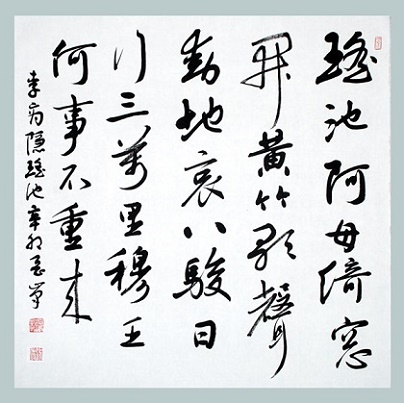 瑤池阿母倚窓
開黃竹歌聲
動地哀八駿日
行三萬里穆王
何事不重來
李商隱瑤池辛卯